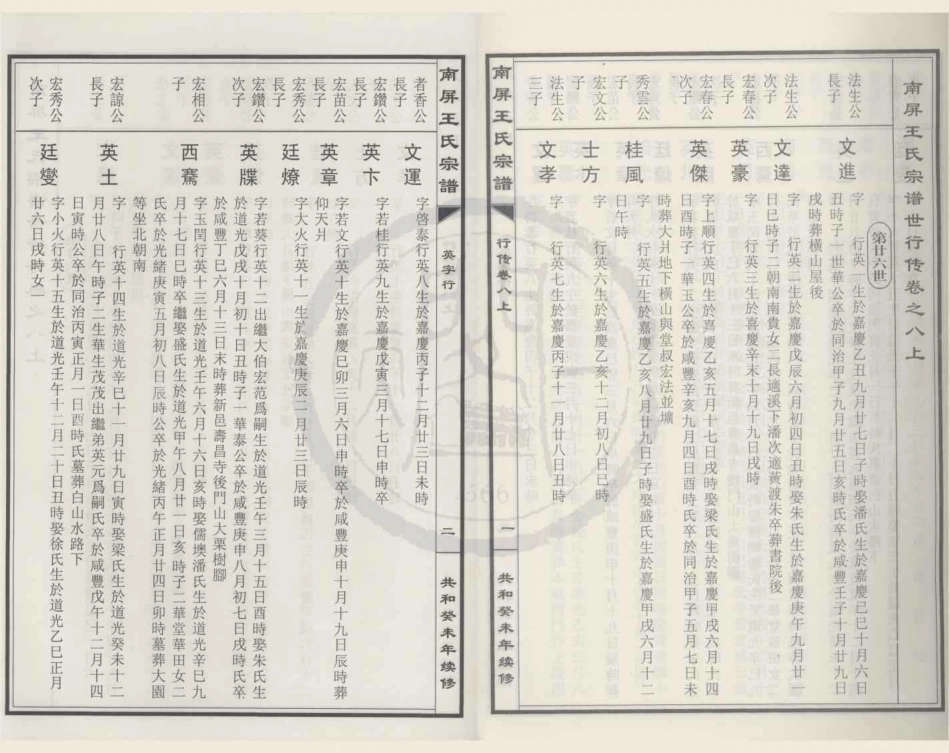 南屏王氏宗谱世行传卷之八上
第廿六世
法生公
長子
文進
字　行英一生於嘉慶乙丑九月廿七日子時娶潘氏生於嘉慶己巳十月六日
丑時子一世華公卒於同治甲子九月廿五日亥時氏卒於咸豐壬子十月廿九日
戌時葬橫山屋後
法生公
次子
文達
字　行英二生於嘉慶戊辰六月初四日丑時娶朱氏生於嘉慶庚午九月廿一
日巳時子二朝南南貴女二長適溪下潘次適黃渡朱卒葬書院後
宏春公
長子
英豪
字　行英三生於喜慶辛未十月十九日戌時
宏春公
次子
英傑
字上順行英四生於嘉慶乙亥五月十七日戌時娶梁氏生於嘉慶甲戌六月十四
日酉時子一華玉公卒於咸豐辛亥九月四日酉時氏卒於同治甲子五月七日未
時葬大爿地下橫山與堂叔宏法並壙
秀雲公
子
桂風
字　行英五生於嘉慶乙亥八月廿九日子時娶盛氏生於嘉慶甲戌六月十二
日午時
宏文公
子
士方
字　行英六生於嘉慶乙亥十二月初八日巳時
法生公
三子
文孝
字　行英七生於嘉慶丙子十一月廿八日丑時
南屏王氏宗譜
行传卷八上
一
共和癸未年续修
南屏王氏宗譜
英字行
二
共和癸未年续修
者香公
長子
文運
字啓泰行英八生於嘉慶丙子十二月廿三日未時
宏鑽公
長子
英卞
字若桂行英九生於嘉慶戊寅三月十七日申時卒
宏苗公
長子
英章
字若文行英十生於嘉慶己卯三月六日申時卒於咸豐庚申十月十九日辰時葬
仰天爿
宏秀公
長子
廷燎
字大火行英十一生於嘉慶庚辰二月廿三日辰時
宏鑽公
次子
英牒
字若葵行英十二出繼大伯宏范爲嗣生於道光壬午三月十五日酉時娶朱氏生
於道光戊戌十月初十日丑時子一華泰公卒於咸豐庚申八月初七日戌時氏卒
於咸豐丁巳六月十三日未時葬新邑壽昌寺後門山大栗樹腳
宏相公
子
西騫
字玉閏行英十三生於道光壬午六月十六日亥時娶儒墺潘氏生於道光辛巳九
月十七日巳時卒繼娶盛氏生於道光甲午八月廿一日亥時子二華堂華田女二
氏卒於光緒庚寅五月初八日辰時公卒於光緒丙午正月廿四日卯時墓葬大園
等坐北朝南
宏諒公
長子
英土
字　行英十四生於道光辛巳十一月廿九日寅時娶梁氏生於道光癸未十二
月廿八日午時子二生華生茂茂出繼弟英元爲嗣氏卒於咸豐戊午十二月十四
日寅時公卒於同治丙寅正月一日酉時氏墓葬白山水路下
宏秀公
次子
廷燮
字小火行英十五生於道光壬午十二月二十日丑時娶徐氏生於道光乙巳正月
廿六日戌時女一